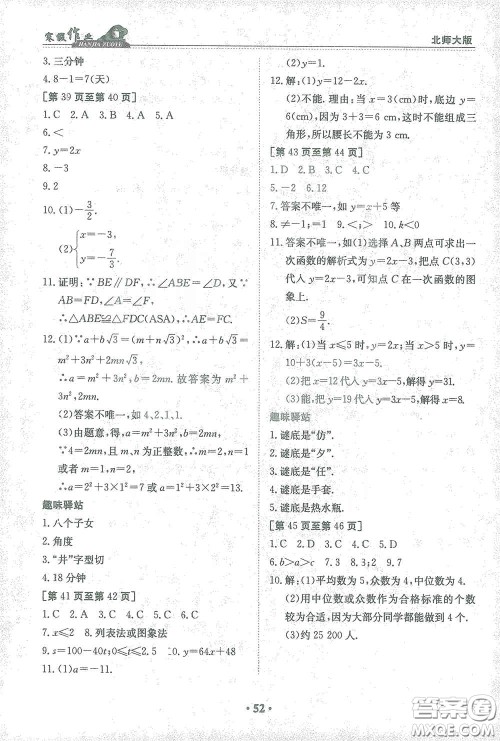 寒假作业
HANJIA ZUOYE
北师大版
3. 三分钟
4. 8-1=7(天)
[第 39 页至第 40 页]
1. C 2. A 3. D 4. A 5. C
6. <
7. y=2x
8. -3
9. 2
10. (1) -3/2.
(2) { x=-3,
y=-7/3.
11. 证明：∵BE∥DF，∴∠ABE=∠D，又∵
AB=FD，∠A=∠F，
∴△ABE≌△FDC(ASA)，∴AE=FC.
12. (1)∵a+b√3=(m+n√3)²，∴a+b√3=
m²+3n²+2mn√3，
∴a=m²+3n²，b=2mn. 故答案为 m²+
3n²，2mn.
(2)答案不唯一，如 4、2、1、1.
(3)由题意，得：a=m²+3n²，b=2mn，
∵4=2mn，且 m、n 为正整数，∴m=2，n
=1 或者 m=1，n=2，
∴a=2²+3×1²=7 或 a=1²+3×2²=13.
趣味驿站
1. 八个子女
2. 角度
3. “井”字型切
4. 18 分钟
[第 41 页至第 42 页]
1. C 2. A 3. C 4. B 5. C 6. A
7. x≤2 8. 列表法或图象法
9. s=100-40t；0≤t≤2.5 10. y=64x+48
11. (1)a=-11.
(2)y=1.
12. 解：(1)y=12-2x.
(2)不能. 理由：当 x=3(cm)时，y=
6(cm)，因为 3+3=6 cm，这时不能组成三
角形，所以腰长不能为 3 cm.
[第 43 页至第 44 页]
1. D 2. B 3. A 4. C
5. -2 6. 12
7. 答案不唯一，如 y=x+5 等
8. ≠-1；=1 9. <；> 10. k<0
11. 答案不唯一，如(1)选择 A、B 两点可求出一
次函数的解析式为 y=2x-3，把点 C(3,3)
代人 y=2x-3，可知点 C 在一次函数的图
象上.
(2)S=9/4.
12. 解：(1)当 x≤5 时，y=2x；当 x>5 时，y=
10+3(x-5)=3x-5.
(2)把 x=10 代人 y=3x-5，解得 y=25.
(3)把 y=19 代人 y=3x-5，解得 x=8.
趣味驿站
1. 谜底是“仿”.
2. 谜底是“夕”.
3. 谜底是“任”.
4. 谜底是手套.
5. 谜底是热水瓶.
[第 45 页至第 46 页]
1. C 2. A 3. A 4. A 5. B
6. b>a>c 7. 3 8. 3；2 9. 4
10. 解：(1)平均数为 5，众数为 4，中位数为 4.
(2)用中位数或众数作为合格标准的个数
较为合适，因为大部分同学都能做到 4 个.
(3)约 25 200 人.
· 52 ·